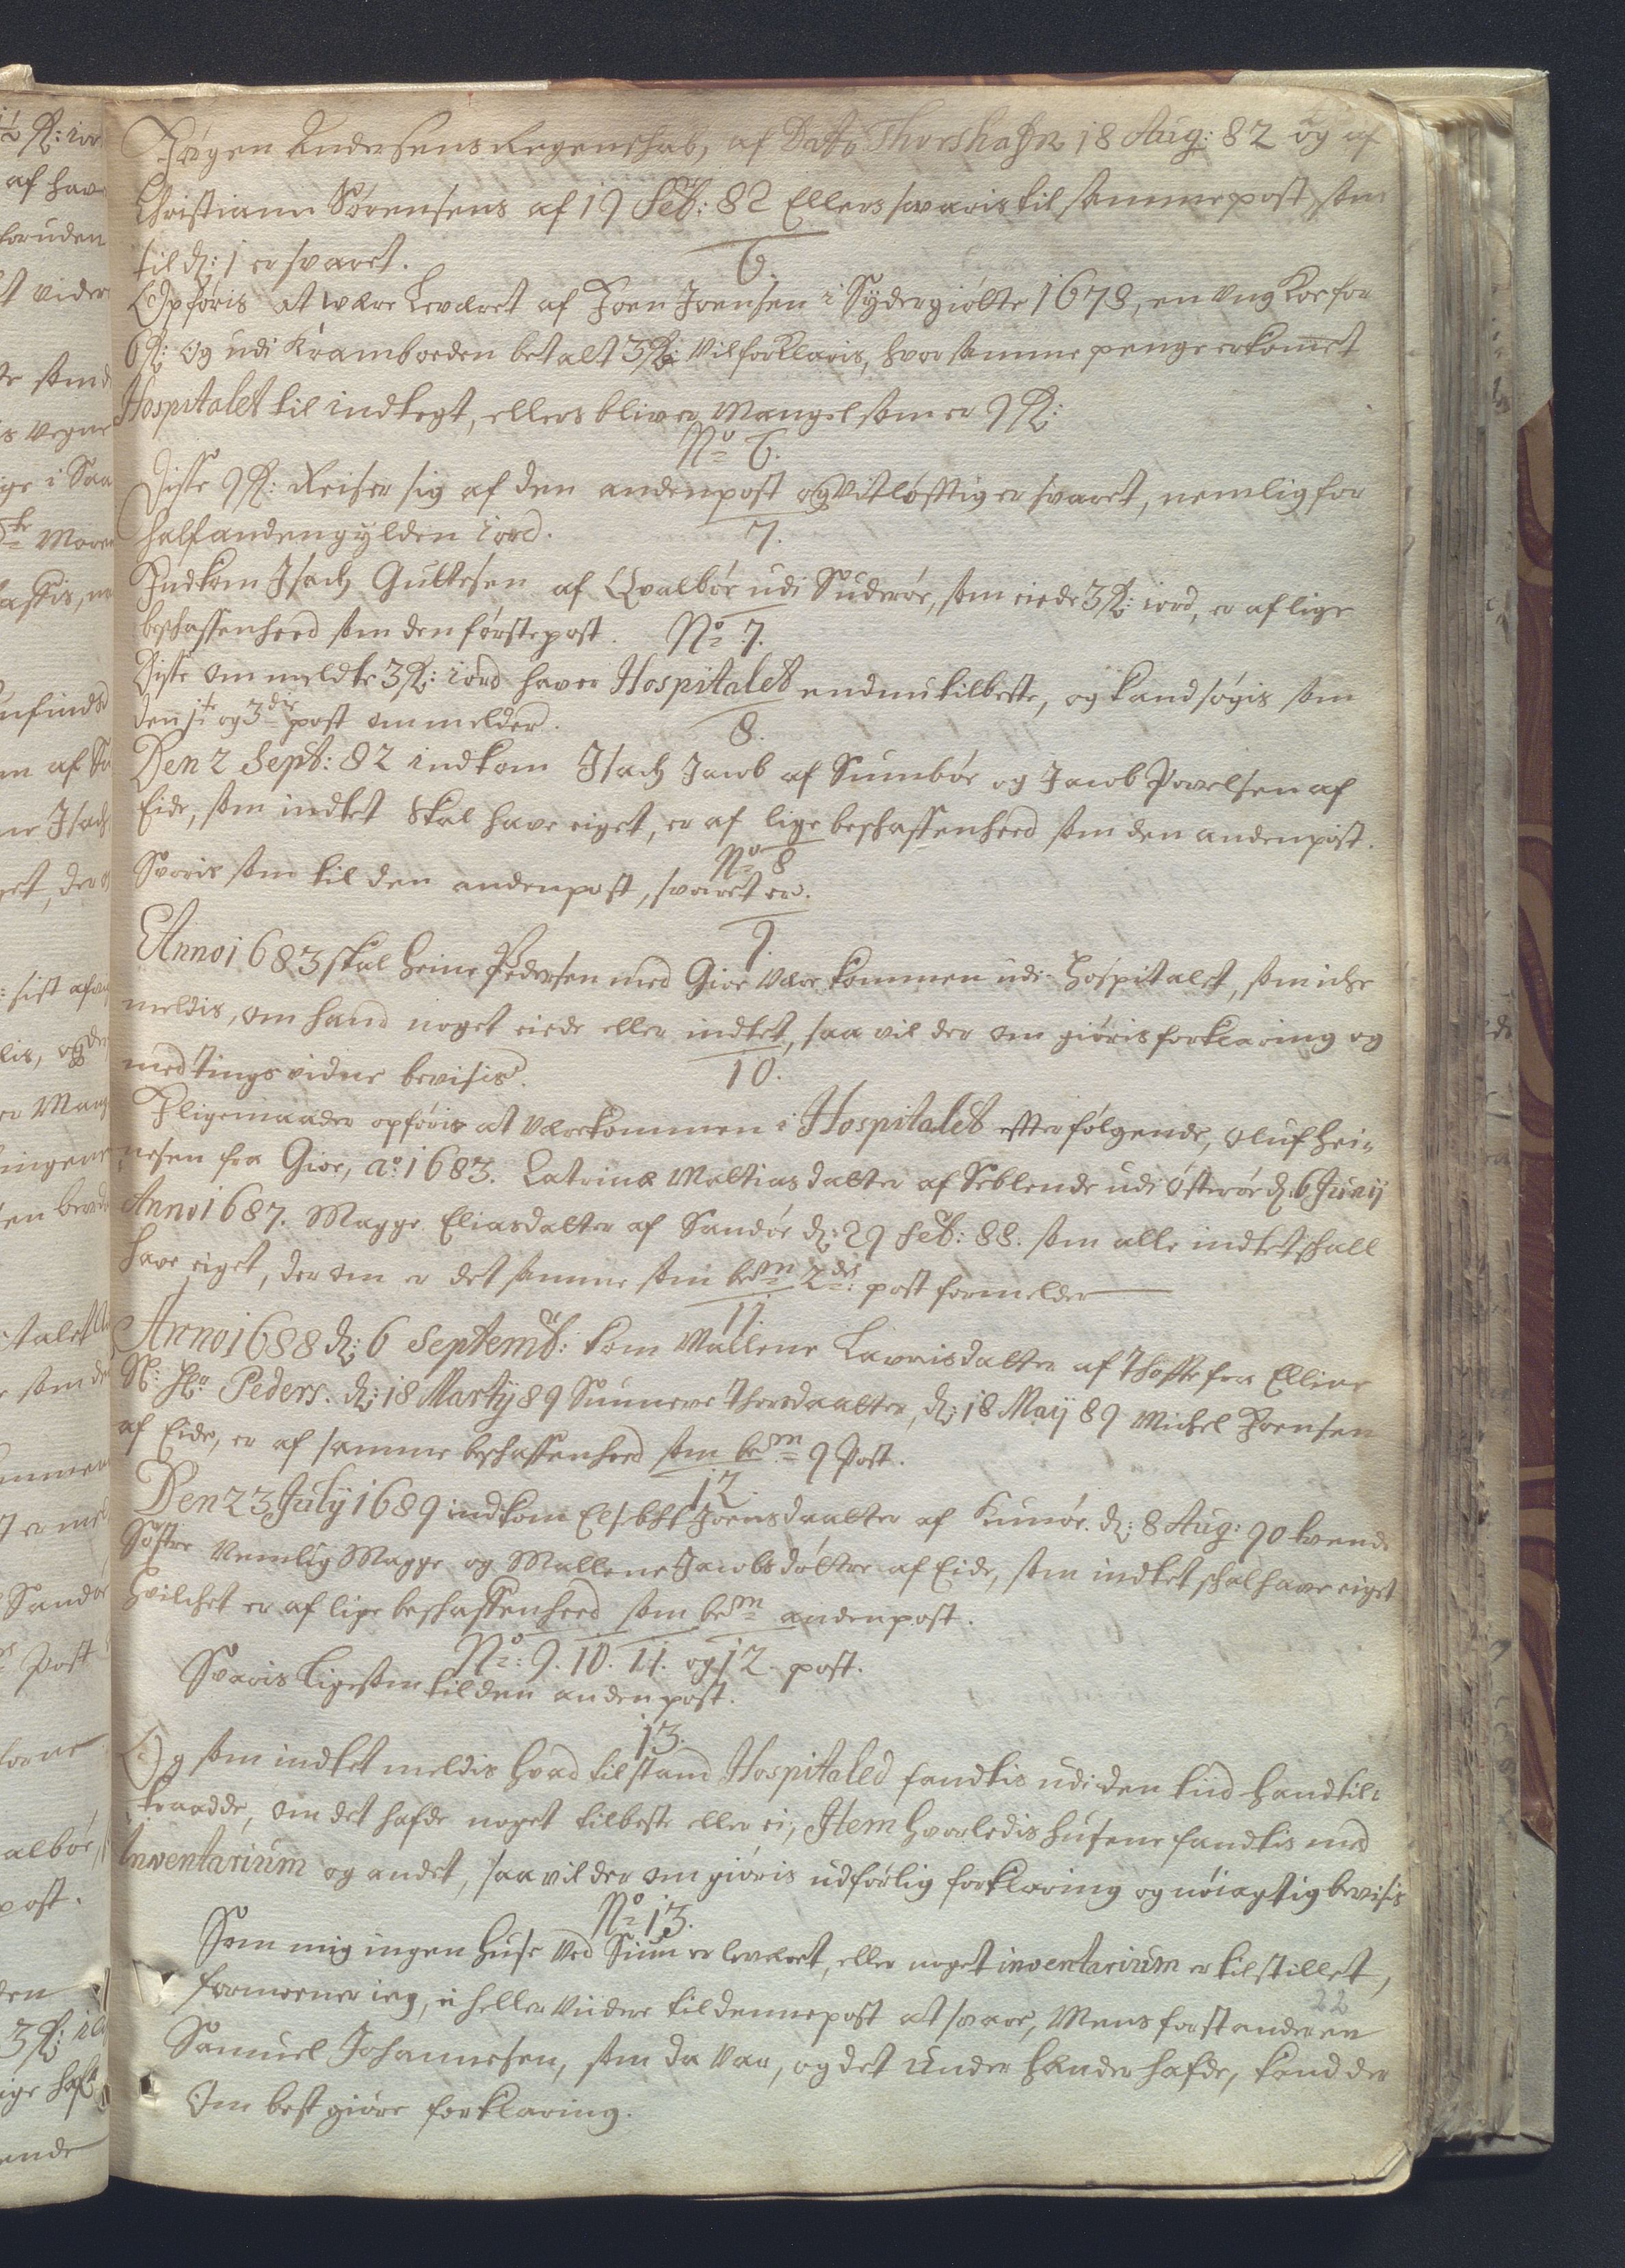 Jørgen Andersens Regenskab, af Dato Thorshafn 18 Aug: 82 og af
Christiann Sørensens af 19 Feb: 82 Ellers svaris til samme post som
til N: 1 er svaret.
6.
Opføris at være Leveret af Joen Joensen i Sydergiøtte 1678, en ung Koe for
6 : Og udi Kramboeden betalt 3 : Vil forklaris, hvor samme penge er komet
Hospitalet til indtegt, ellers bliver Mangel som er 9 :
No 6.
Disse 9 : Reiser sig af den anden post og vitløfftig er svaret, nemlig for
halfanden gylden iord.
7.
Indkom Isach Guttesen af Qvalbøe udi Suderøe, som eiede 3 : iord, er af lige
beskaffenheed som den første post.
No 7.
Disse ommeldte 3 : iord haver Hospitalet endnu tilbeste, og kand søgis som
den 1te og 3die post ommelder.
8.
Den 2 Sept: 82 indkom Isach Jacob af Sumbøe og Jacob Povelsen af
Eide, som indtet skal have eiget, er af lige beskaffenheed som den anden post.
No 8
Svaris som til den anden post, svaret er.
9.
Anno 1683 skal Heine Pedersen med Gioe være kommen udi Hospitalet, som icke
meldis, om hand noget eiede eller indtet, saa vil der om giøris forklaring og
med Tings vidne bevisis.
10.
Iligemaader opføris at være kommen i Hospitalet efterfølgende, Oluf Hei¬
nesen fra Gioe, ao 1683. Catrina Mattiasdatter af Seblende udi Østerøe d: 6 Junij
Anno 1687. Magge Eliasdatter af Sandøe d: 29 Feb: 88. som alle indtet skall
have eiget, der om er det samme som bem 2den post formelder
11.
Anno 1688 d: 6 Septemb: kom Mallene Lavrisdatter af Thoffte fra Elline
Sl: Hr Peders. d: 18 Martij 89 Sunneve Thorsdaatter, d: 18 Maij 89 Michel Joensen
af Eide, er af samme beskaffenheed som bem 9 Post.
12.
Den 23 Julij 1689 indkom Elsebeth Joensdaatter af Kunøe. d: 8 Aug: 90 tvende
Søstre Nemlig Magge og Mallene Jacobsdøttre af Eide, som indtet skal have eiget
hvilchet er af lige beskaffenheed som bem anden post.
No: 9. 10. 11. og 12. post.
Svaris Ligesom til den anden post.
13.
Og som indtet meldis hvad tilstand Hospitaled fandtis udi den tiid hand til¬
traadde, om det hafde noget tilbeste eller ei, Item hvorledis husene fandtis med
Inventarium og andet, saa vil der om giøris udførlig forklaring og nøiagtig bevisis
No 13.
Som mig ingen huse ved Siun er leveret, eller noget inventarium er tilstillet,
formoener ieg, ei heller viidere til denne post at svare, Mens forstanderen
22
Samuel Johannesen, som da var, og det under hænder hafde, kand der
Om best giøre forklaring.